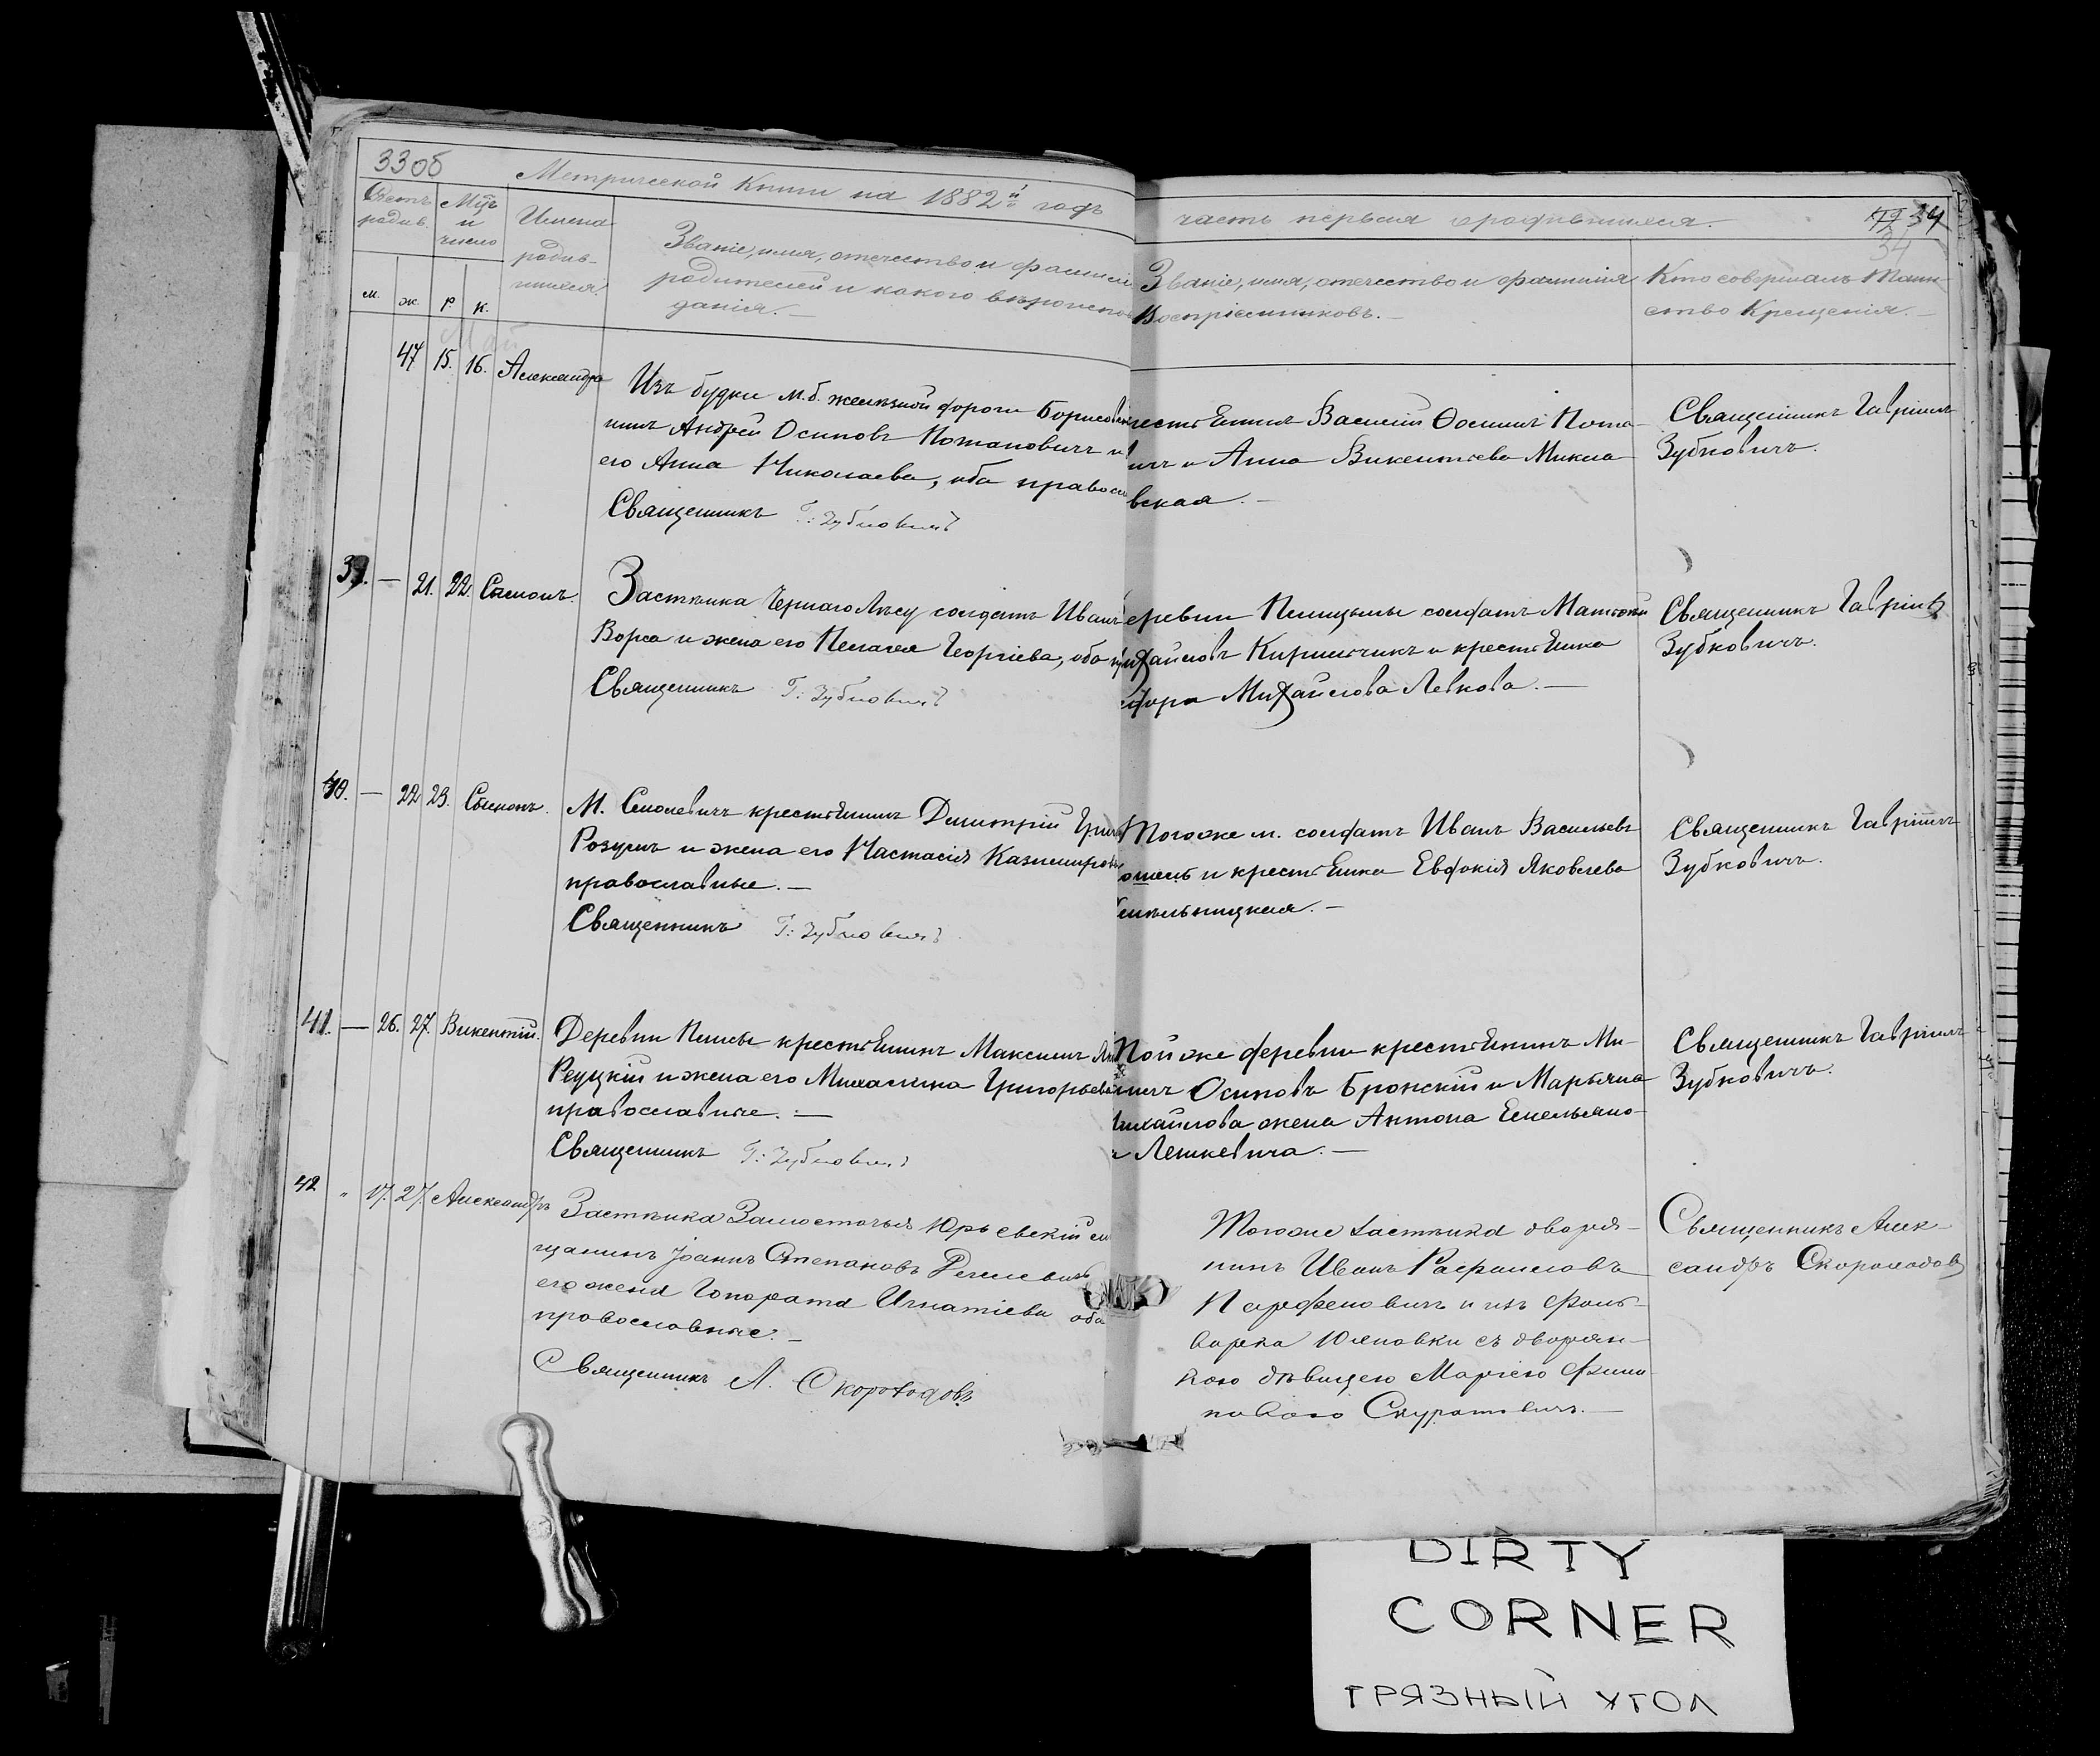 33об
Метрической Книги на 1882й годъ
часть первая о родившихся.
34
34
Счетъ родив.
Мцъ и число
Имена родив-
шихся.
Званіе, имя, отчество и фамилія
родителей и какого вѣроиспо
данія. —
Званіе, имя, отчество и фамилія
Воспріемниковъ. —
Кто совершалъ Таин-
ство Крещенія. —
м. ж. р. к.
Май
47 15. 16. Александра
Изъ будки М. б. желѣзной дороги Борисов
нинъ Андрей Осиповъ Потаповичъ и
его Анна Николаева, оба правосл
Священникъ Г: Зубковичъ
рестьянинъ Василій Осиповъ Пота-
ичъ и Анна Викентіева Микла
вская. —
Священникъ Гавріилъ
Зубковичъ.
39. — 21. 22. Симонъ.
Застѣнка Чернаго Лѣсу солдатъ Иванъ
Ворса и жена его Пелагея Георгіева, оба
Священникъ Г: Зубковичъ
еревни Пелицы солдатъ Матвѣй
ихайловъ Кирильчикъ и крестьянка
едора Михайлова Левкова. —
Священникъ Гавріилъ
Зубковичъ.
40. — 22 23. Симонъ.
М. Смолевичъ крестьянинъ Димитрій Григ
Розумъ и жена его Настасія Казимирова
православные. —
Священникъ Г: Зубковичъ
Тогоже м. солдатъ Иванъ Васильевъ
ошель и крестьянка Евдокія Яковлева
ельницкая. —
Священникъ Гавріилъ
Зубковичъ.
41. — 26. 27. Викентій.
Деревни крестьянинъ Максимъ
Реуцкій и жена его Михалина Григорьева
православные. —
Священникъ Г: Зубковичъ
Той же деревни крестьянинъ Ми-
Осиповъ Бронскій и Марьяна
Михайлова жена Антона Емельяно-
Лешкевича. —
Священникъ Гавріилъ
Зубковичъ.
42 „ 17. 27. Александръ
Застѣнка Замосточья Юрьевскій
щанинъ Іоаннъ Степановъ
его жена Гонората Игнатіева оба
православные. —
Священникъ А. Скороходовъ
Тогоже застѣнка дворя-
нинъ Иванъ Рафаиловъ
Парфеновичъ и изъ Фоль-
варка Юляновки съ дворян-
кою дѣвицею Маріею Фили-
повою Скуратовичъ. —
Священникъ Алек-
сандръ Скороходовъ
DIRTY
CORNER
ГРЯЗНЫЙ УГОЛ